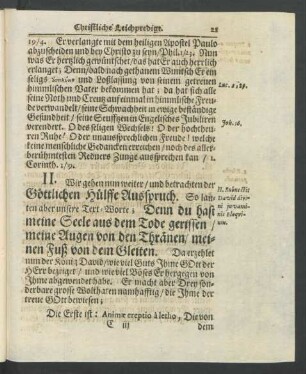 Christliche Leichpredigt. 21
19/4. Er verlangte mit dem heiligen Apostel Paulo
abzuscheiden und bey Christo zu seyn/ Phil. 1/23. Nun
was Er hertzlich gewünschet/ das hat Er auch herrlich
erlanget; Denn/ daß nach gethanem Wunsch Er ein
seliges und Loßlassung von seinem getreuen
himmlischen Vater bekommen hat; da hat sich alle
seine Noth und Creutz auf einmahl in himmlische Freude
verwandelt/ seine Schwachheit in ewige beständige
Gesundheit/ seine Seufftzen in Englisches Jubiliren
verendert. O des seligen Wechsels! O der hochtheu-
ren Ruhe! O der unaussprechlichen Freude! welche
keine menschliche Gedancken erreichen/ noch des aller-
berühmtesten Redners Zunge aussprechen kan/ 1.
Corinth. 2/9.
Luc. 2/29.
Job. 16.
II. Wir gehen nun weiter/ und betrachten der
Göttlichen Hülffe Ausspruch. So lau-
ten aber unsere Text-Worte: Denn du hast
meine Seele aus dem Tode gerissen/
meine Augen von den Thränen/ mei-
nen Fuß von dem Gleiten. Da erzehlet
nun der König David/ wie viel Guts Ihme GOtt der
HErr bezeiget/ und wie viel Böses Er hergegen von
Ihme abgewendet habe. Er macht aber Drey son-
derbare grosse Wolthaten namhafftig/ die Ihme der
treue GOtt bewiesen;
Die Erste ist: Animæ ereptio à letho, Die von
C iij dem